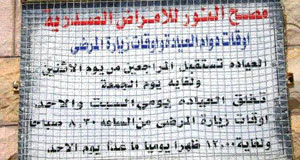 مصح النور للامراض الصدرية
اوقات دوام العيادة واوقات زيارة المرضى
العياده تستقبل المراجعين من يوم الاثنين
ولغاية يوم الجمعة
تغلق العياده يومي السبت والاحد
اوقات زيارة المرضى من الساعه ٨,٣٠ صباحا
ولغاية ١٢,٠٠ ظهرا يوميا ما عدا يوم الاحد